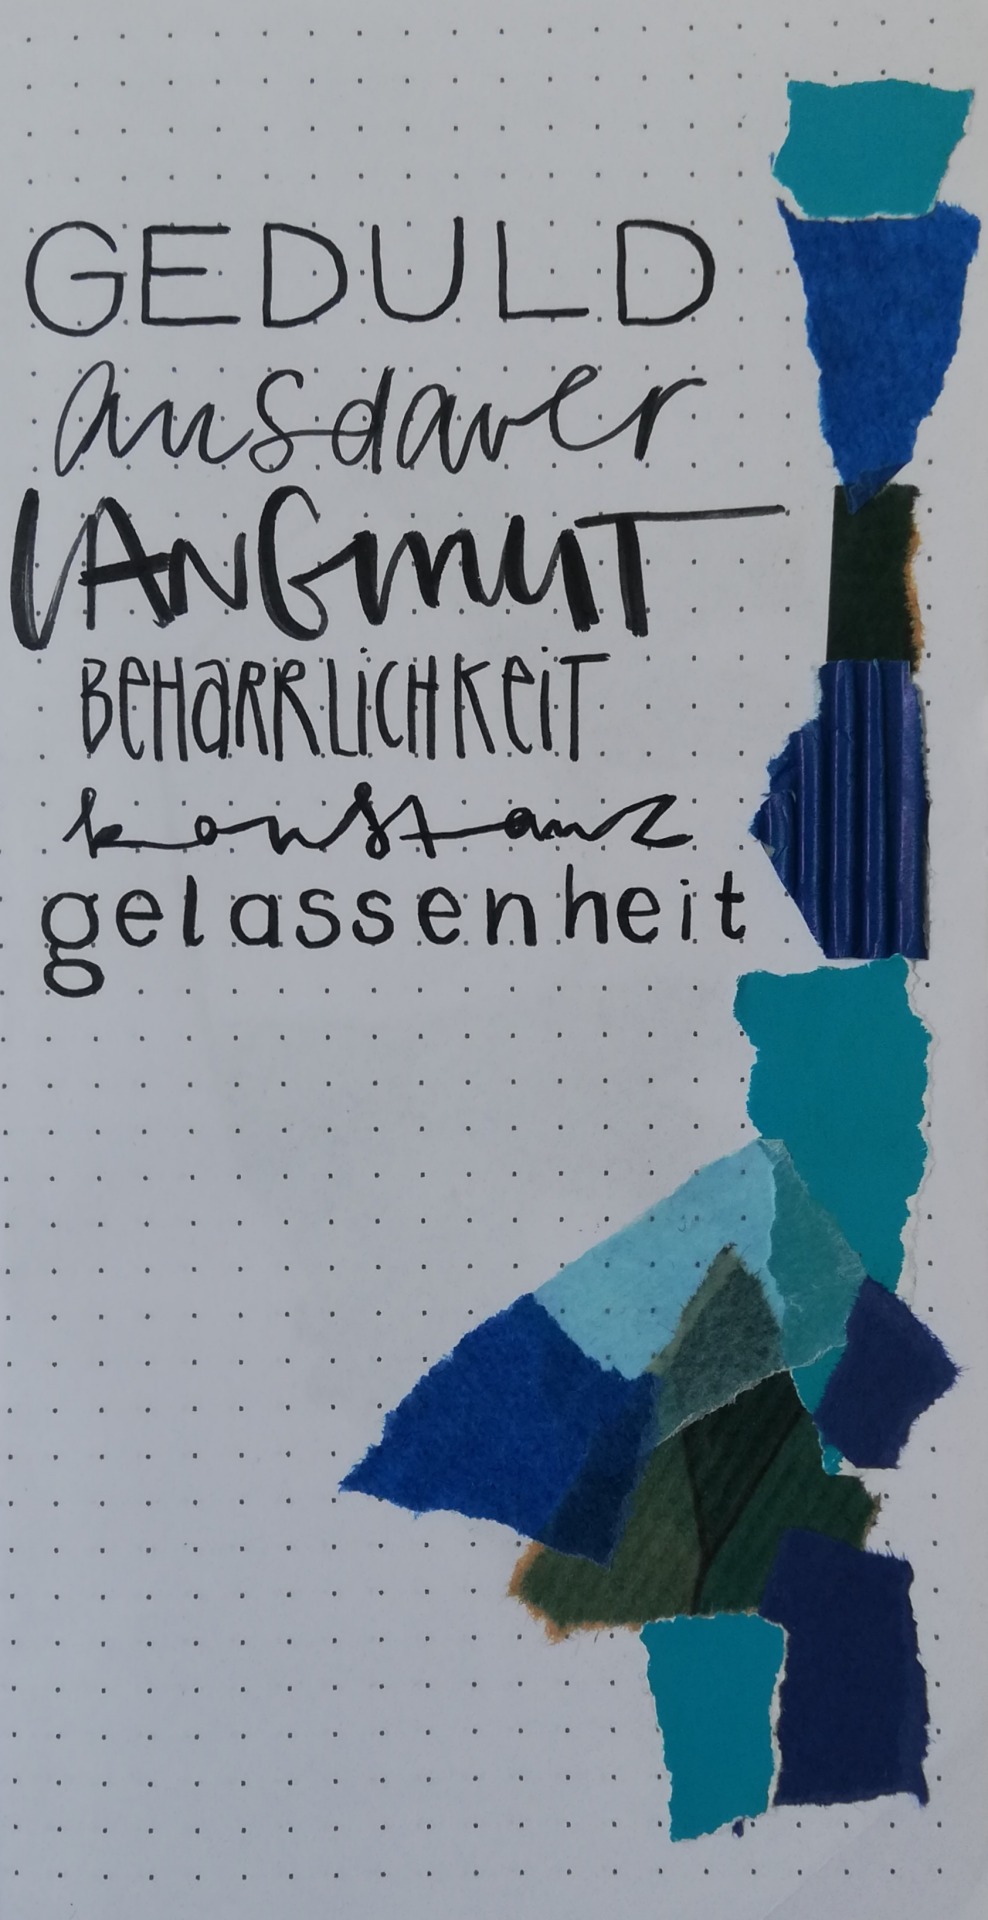 GEDULD
ausdauer
LANGMUT
BEHARRLiCHKEiT
konstanz
gelassenheit